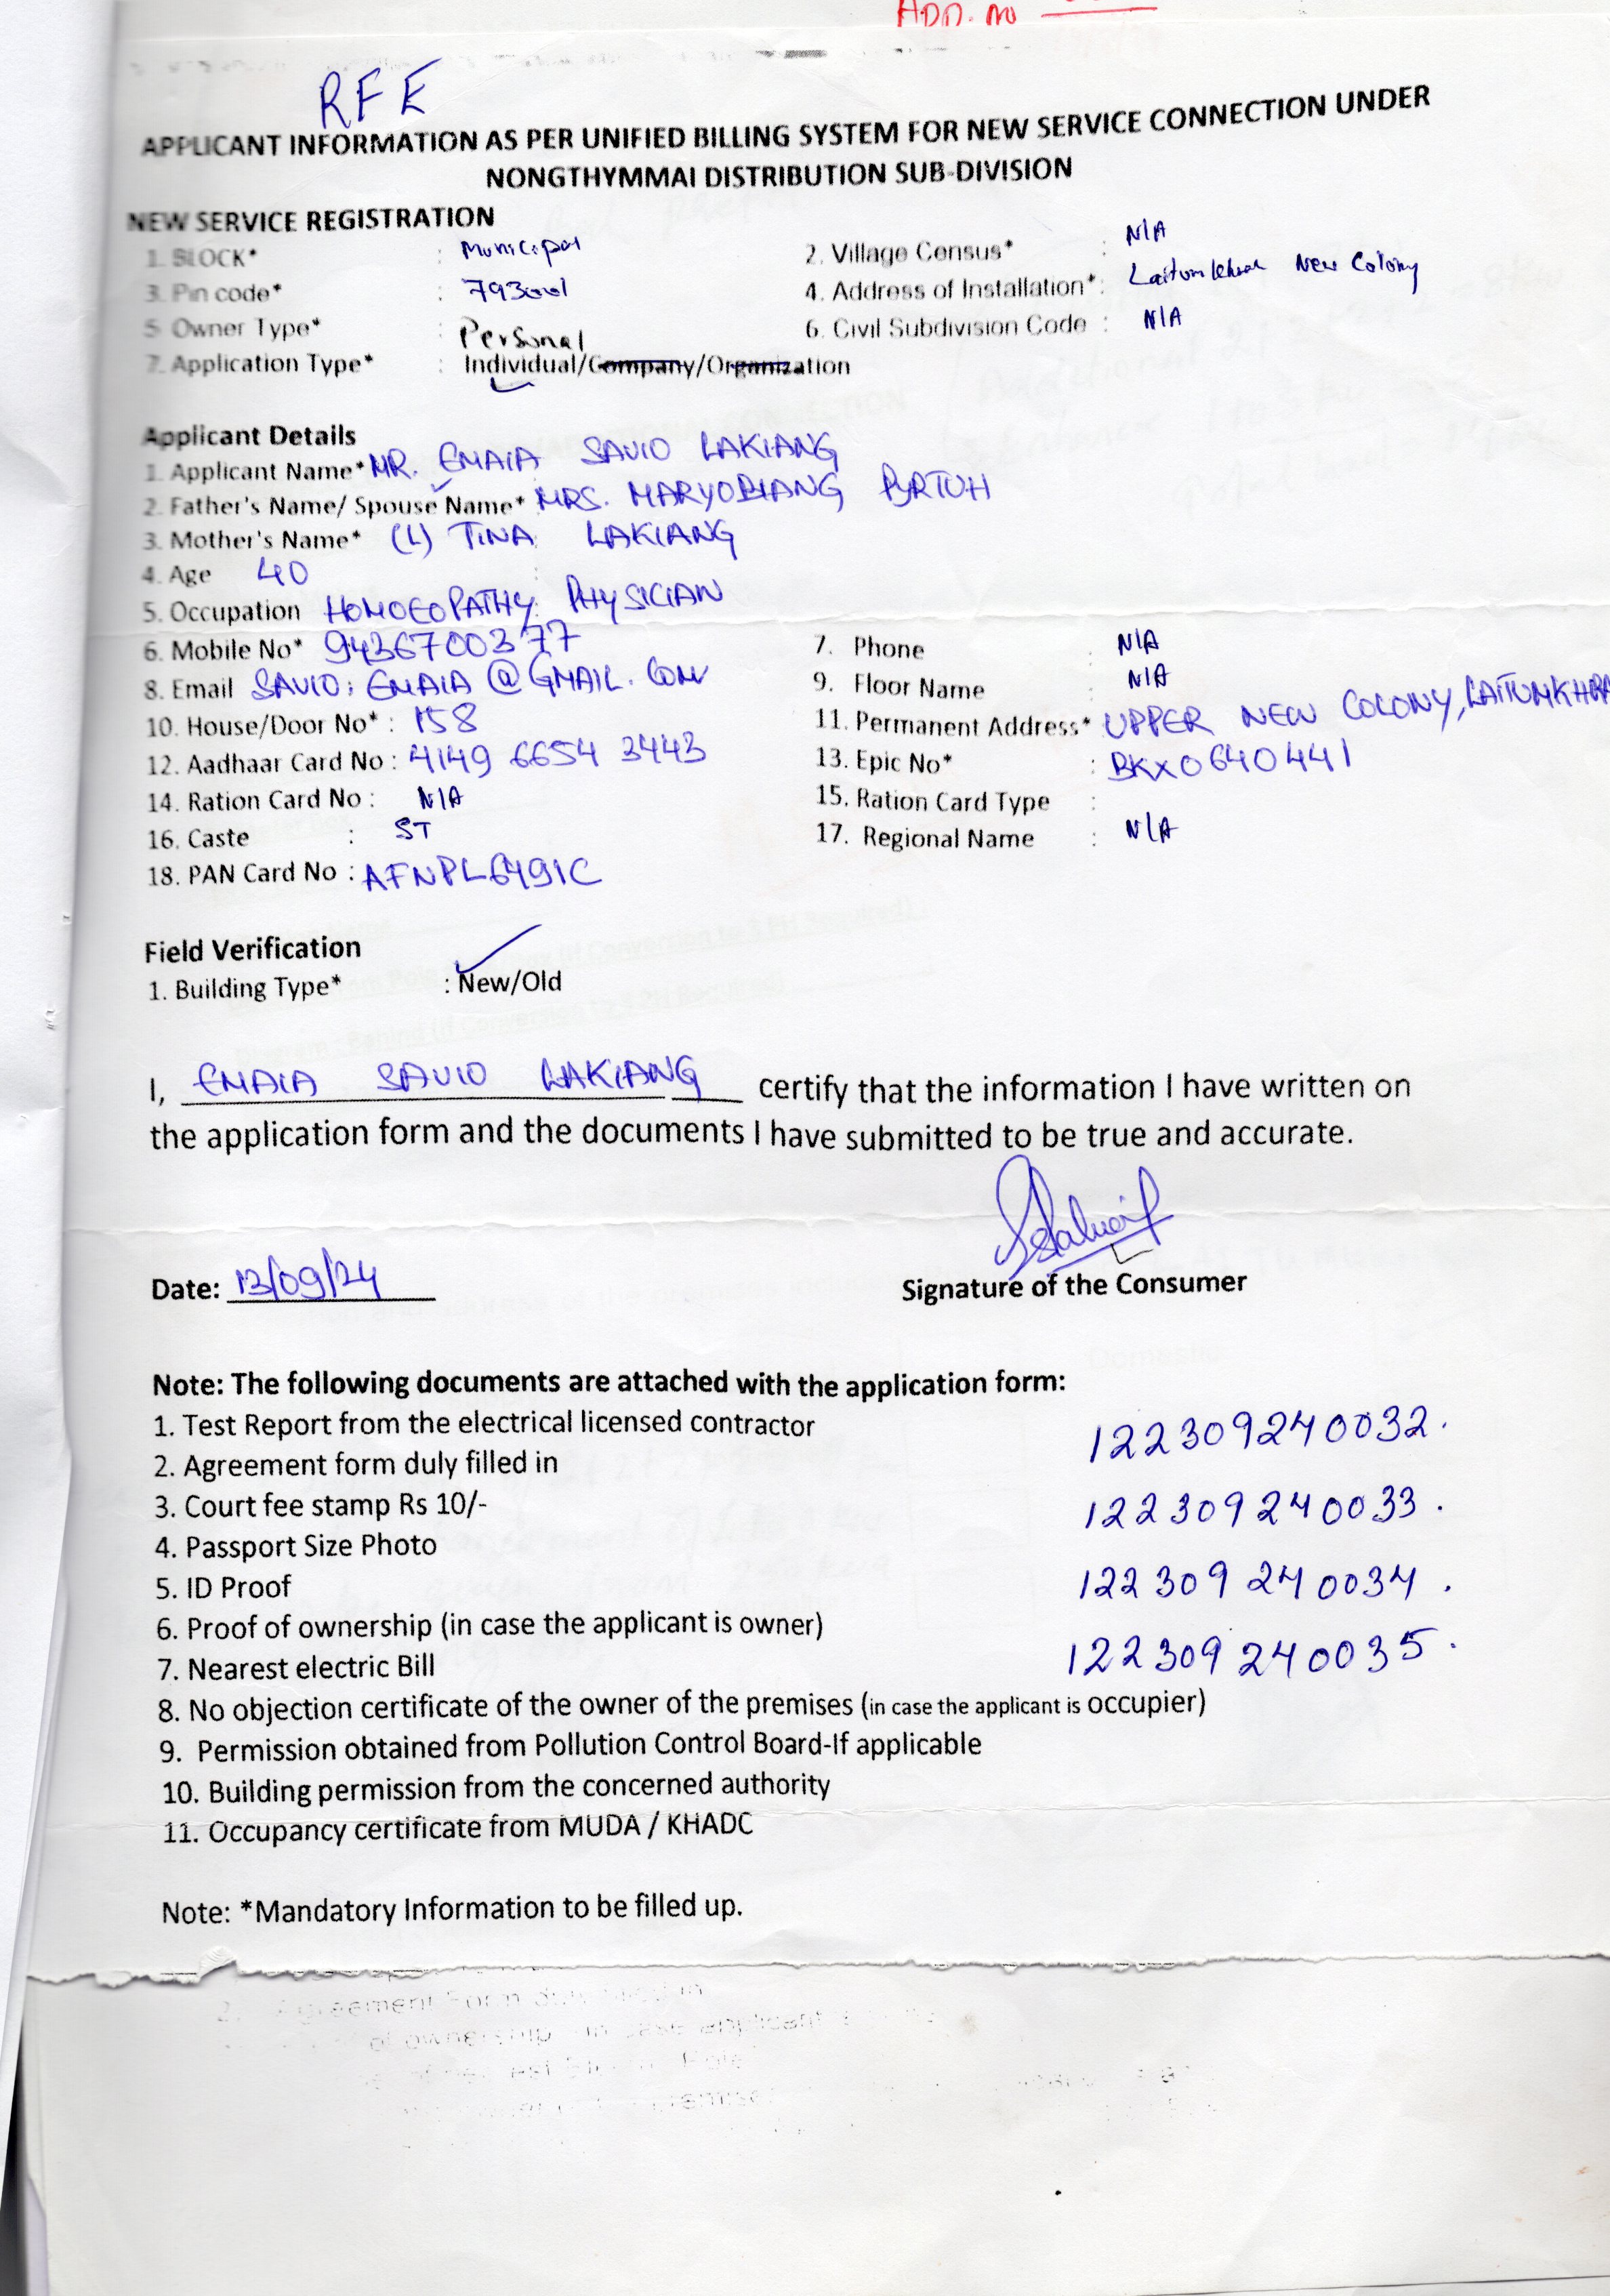 ADD. No
RFE
APPLICANT INFORMATION AS PER UNIFIED BILLING SYSTEM FOR NEW SERVICE CONNECTION UNDER
NONGTHYMMAI DISTRIBUTION SUB-DIVISION
NEW SERVICE REGISTRATION
1. BLOCK* : Municipal 2. Village Census* : N/A
3. Pin code* : 793001 4. Address of Installation* : Laitumkhrah New Colony
5 Owner Type* : Personal 6. Civil Subdivision Code : N/A
7. Application Type* : Individual/Company/Organization
Applicant Details
1. Applicant Name* MR. EMAIA SAVIO LAKIANG
2. Father's Name/ Spouse Name* MRS. MARYOBIANG PYRTUH
3. Mother's Name* (L) TINA LAKIANG
4. Age 40
5. Occupation : HOMOEOPATHY PHYSICIAN
6. Mobile No* 9436700377 7. Phone : N/A
8. Email SAVIO.EMAIA@GMAIL.COM 9. Floor Name : N/A
10. House/Door No* : 158 11. Permanent Address* UPPER NEW COLONY, LAITUMKHRA
12. Aadhaar Card No : 4149 6654 3443 13. Epic No* : BKX0640441
14. Ration Card No : N/A 15. Ration Card Type :
16. Caste : ST 17. Regional Name : N/A
18. PAN Card No : AFNPL6491C
Field Verification
1. Building Type* : New/Old
I, EMAIA SAVIO LAKIANG certify that the information I have written on
the application form and the documents I have submitted to be true and accurate.
Date: 13/09/24 Signature of the Consumer
Note: The following documents are attached with the application form:
1. Test Report from the electrical licensed contractor 122309240032.
2. Agreement form duly filled in
3. Court fee stamp Rs 10/- 122309240033.
4. Passport Size Photo
5. ID Proof 122309240034.
6. Proof of ownership (in case the applicant is owner)
7. Nearest electric Bill 122309240035.
8. No objection certificate of the owner of the premises (in case the applicant is occupier)
9. Permission obtained from Pollution Control Board-If applicable
10. Building permission from the concerned authority
11. Occupancy certificate from MUDA / KHADC
Note: *Mandatory Information to be filled up.
2. Agreement Form duly filled in